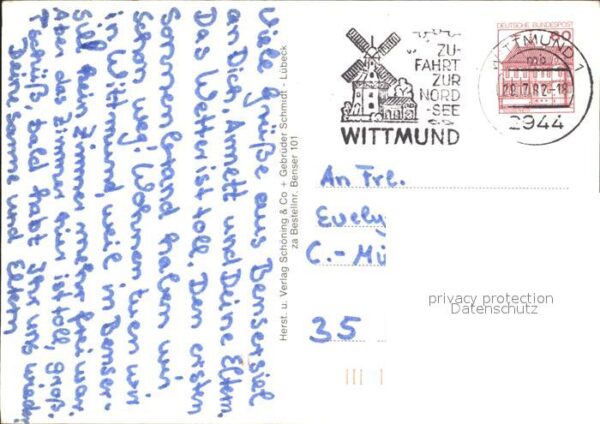 Viele Grüße aus Bensersiel
an Dich, Annett und Deine Eltern.
Das Wetter ist toll. Den ersten
Sonnenbrand haben wir
schon weg. Wohnen tuen wir
in Wittmund, weil in Benser-
siel kein Zimmer mehr frei war.
Aber das Zimmer hier ist toll, groß.
Tschüß bald habt Ihr uns wieder
Deine und Eltern
Herst. u. Verlag Schöning & Co + Gebrüder Schmidt - Lübeck
za Bestellnr. Benser 101
ZU-
FAHRT
ZUR
NORD
SEE
WITTMUND
DEUTSCHE BUNDESPOST
WITTMUND 1
mb
2944
An Frl.
Evely
C.-Mü
35
privacy protection
Datenschutz